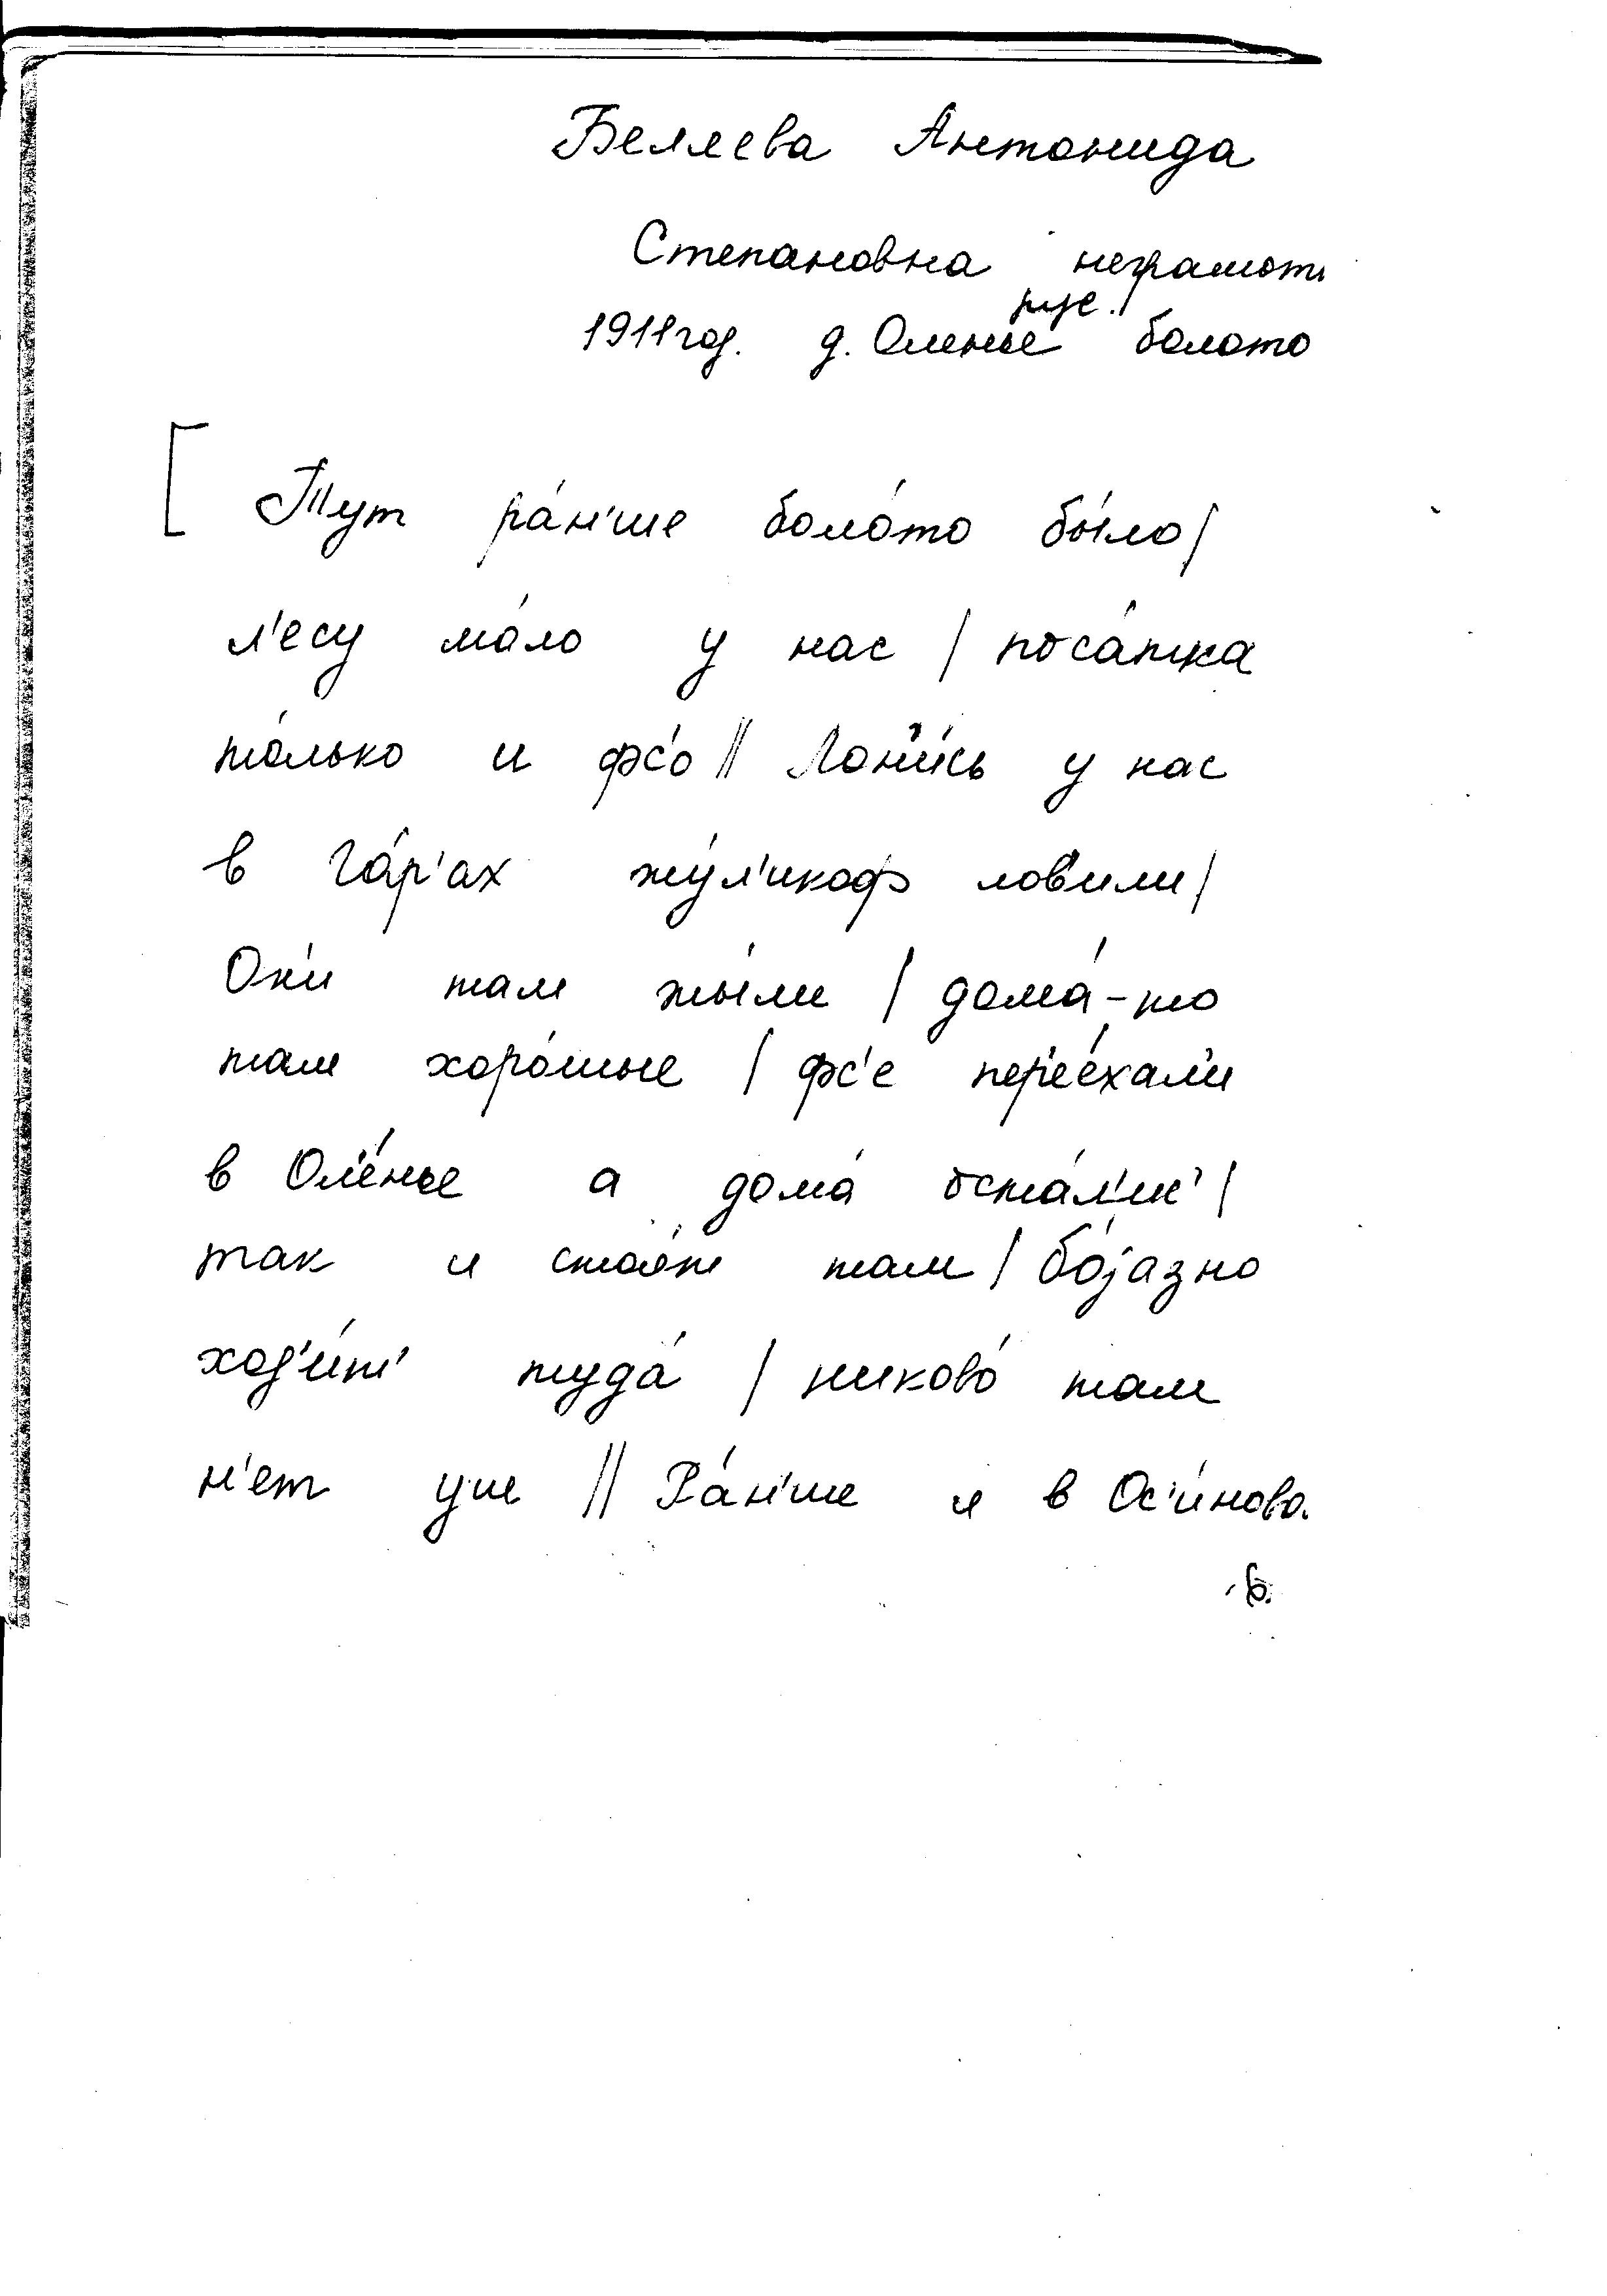 Беляева Антонида
Степановна неграмотн
рус.
1911 год. д. Оленье болото
[ Тут ра́н'ше боло́то бы́ло/
л'есу ма́ло у нас / поса́тка
то́лько и фс'о // Лони́сь у нас
в Га́р'ах жу́л'икоф лов'или/
Он'и там жы́ли / дома́-то
там хоро́шые / фс'е пер'е́хал'и
в Оле́нье а дома́ оста́л'ис' /
так и стоя́т там / бо́jазно
ход'и́т' туда́ / никово́ там
н'ет уже // Ра́н'ше и в Ос'и́ново.